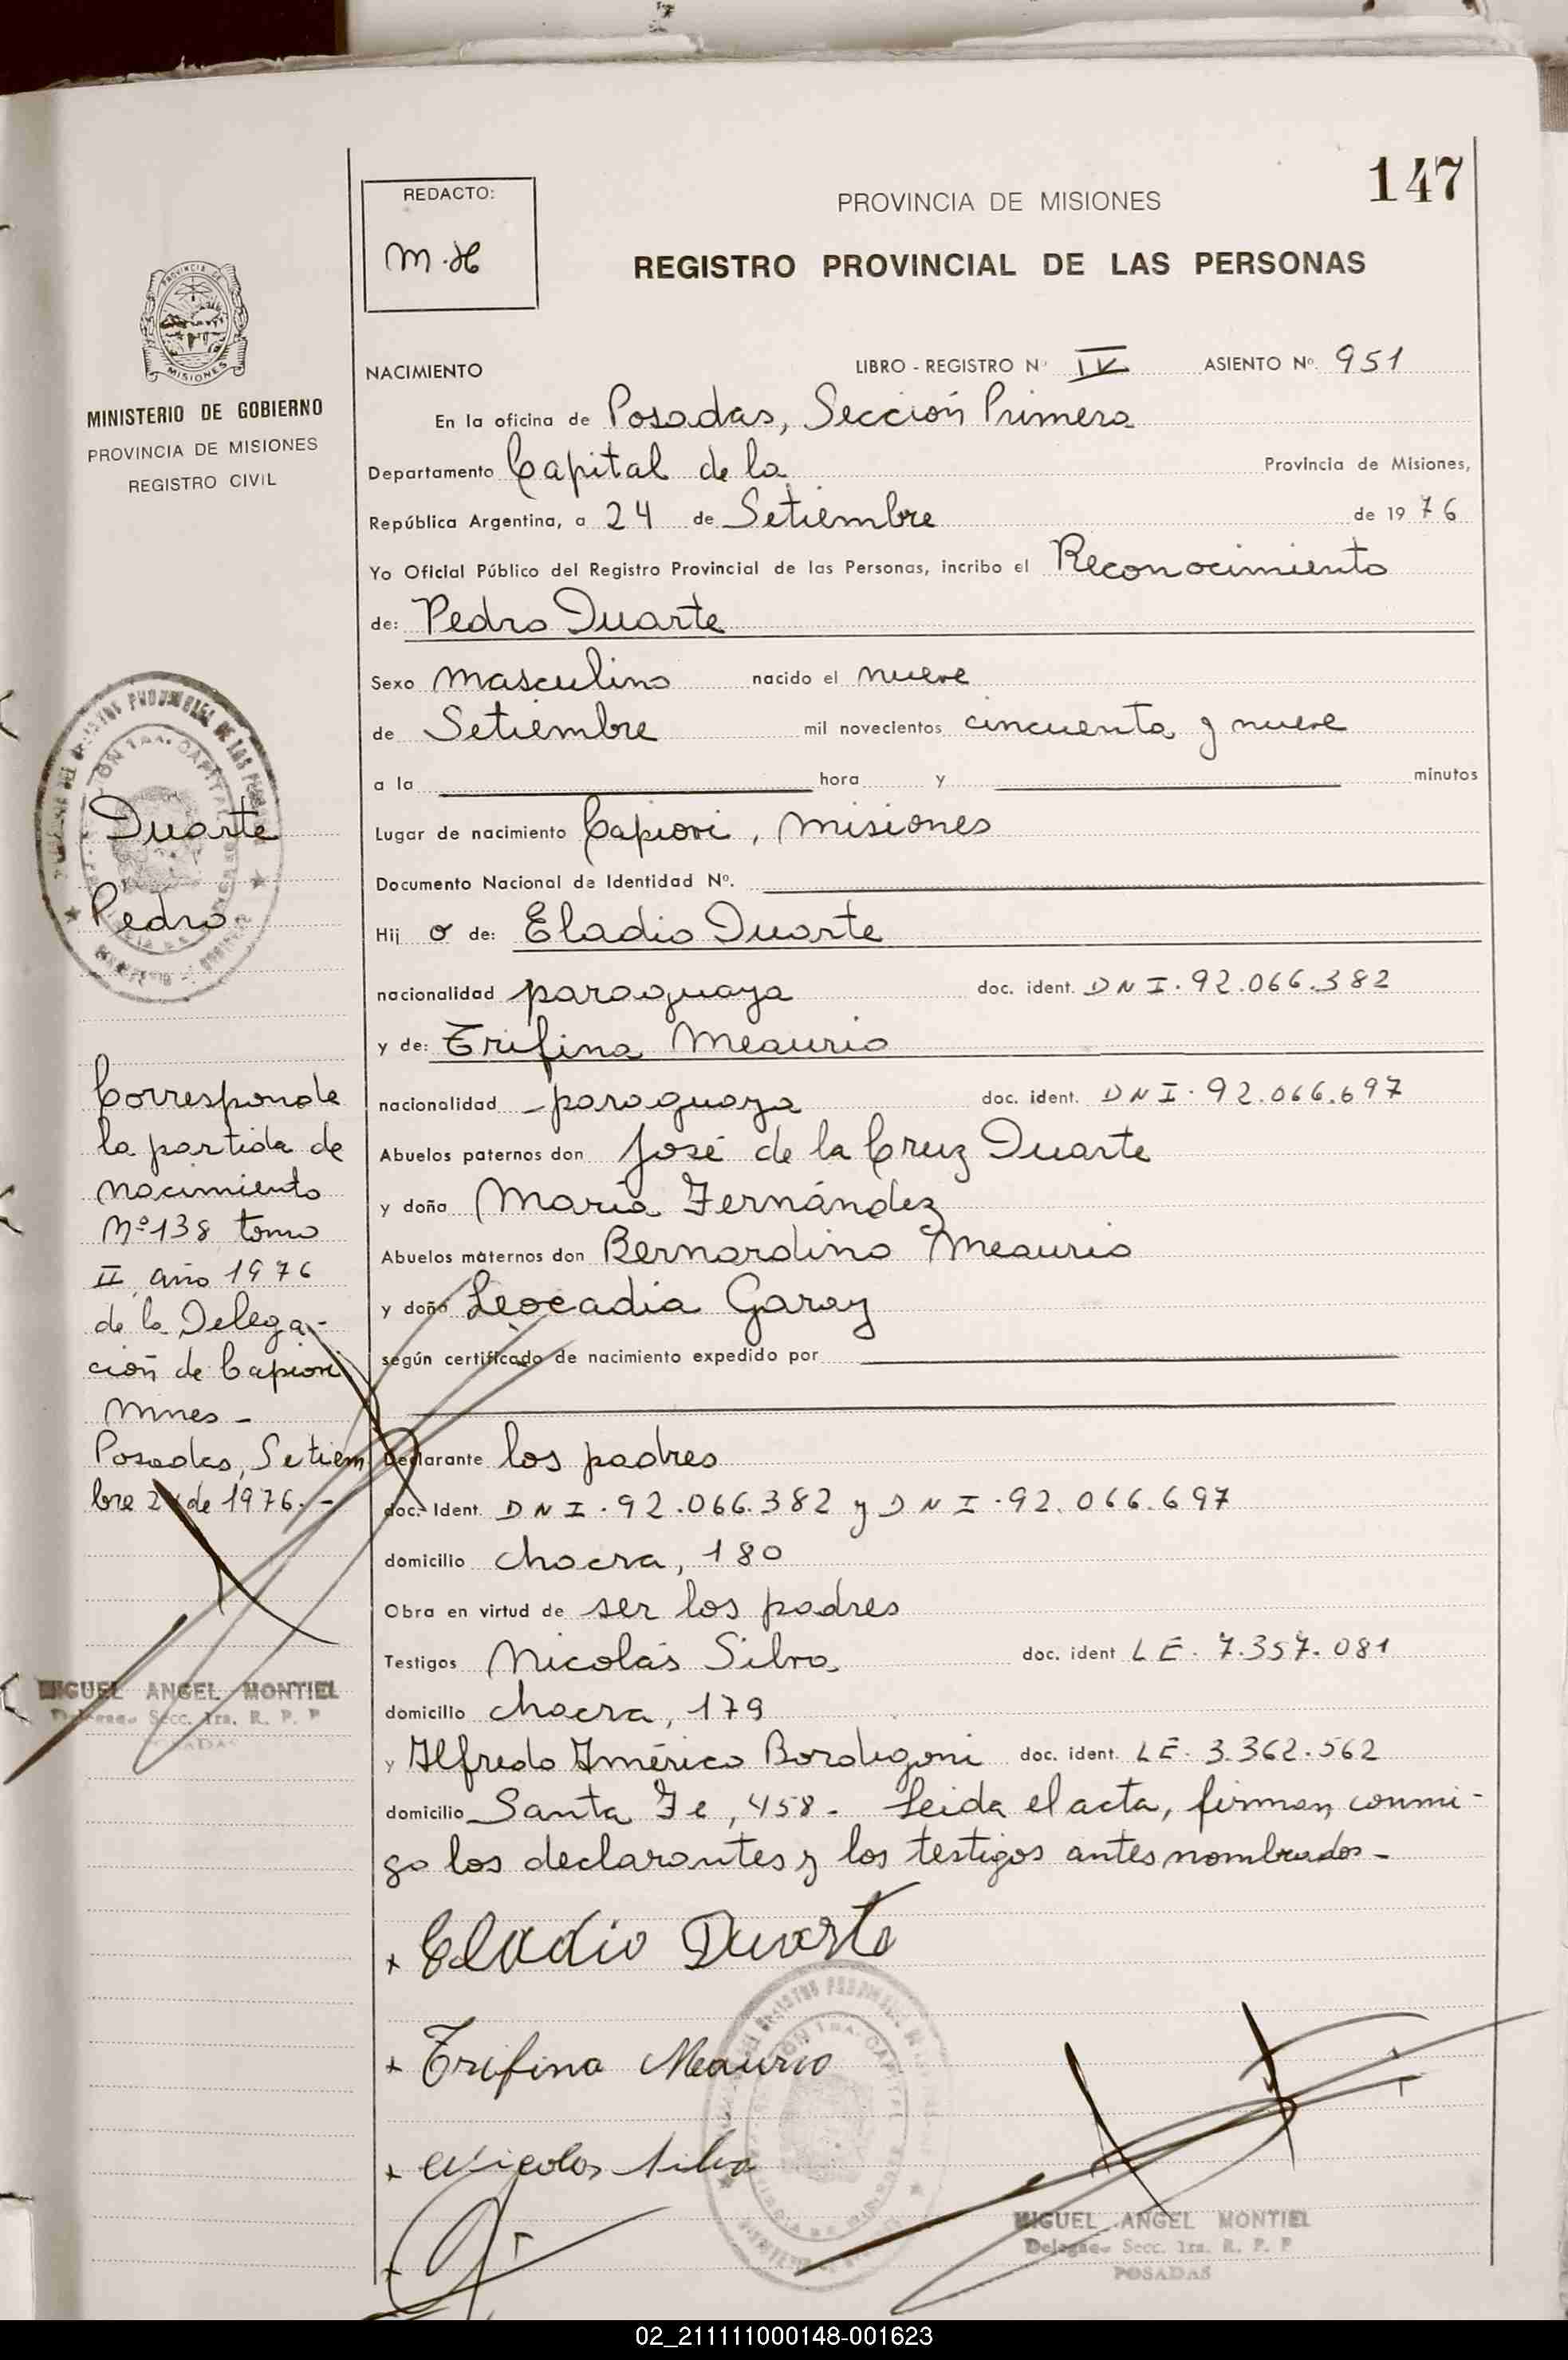 147
REDACTO:
M.H
PROVINCIA DE MISIONES
REGISTRO PROVINCIAL DE LAS PERSONAS
PROVINCIA DE
MISIONES
MINISTERIO DE GOBIERNO
PROVINCIA DE MISIONES
REGISTRO CIVIL
NACIMIENTO LIBRO - REGISTRO Nº IV ASIENTO Nº. 951
En la oficina de Posadas, Sección Primera
Departamento Capital de la Provincia de Misiones,
República Argentina, a 24 de Setiembre de 1976
Yo Oficial Público del Registro Provincial de las Personas, incribo el Reconocimiento
de: Pedro Duarte
Sexo masculino nacido el nueve
de Setiembre mil novecientos cincuenta y nueve
a la hora y minutos
Lugar de nacimiento Capiovi, Misiones
Documento Nacional de Identidad Nº.
Hij o de: Eladio Duarte
nacionalidad paraguaya doc. ident. DNI. 92.066.382
y de: Trifina Meaurio
nacionalidad paraguaya doc. ident. DNI. 92.066.697
Abuelos paternos don José de la Cruz Duarte
y doña María Fernández
Abuelos maternos don Bernardino Meaurio
y doña Leocadia Garay
según certificado de nacimiento expedido por
Declarante los padres
doc. Ident. DNI. 92.066.382 y DNI. 92.066.697
domicilio chacra, 180
Obra en virtud de ser los padres
Testigos Nicolás Silva doc. ident LE. 7.357.081
domicilio chacra, 179
y Alfredo Américo Bordigoni doc. ident. LE. 3.362.562
domicilio Santa Fe, 458. Leida el acta, firman conmi-
go los declarantes y los testigos antes nombrados-
+ Eladio Duarte
+ Trifina Meaurio
+ Nicolas Silva
+
MIGUEL ANGEL MONTIEL
Delegado Secc. 1ra. R. P. P
POSADAS
Duarte
Pedro
Corresponde
la partida de
nacimiento
Nº 138 tomo
II, año 1976
de la Delega-
ción de Capiovi
Mnes-
Posadas, Setiem
bre 24 de 1976.-
MIGUEL ANGEL MONTIEL
Delegado Secc. 1ra. R. P. P
POSADAS
02_211111000148-001623